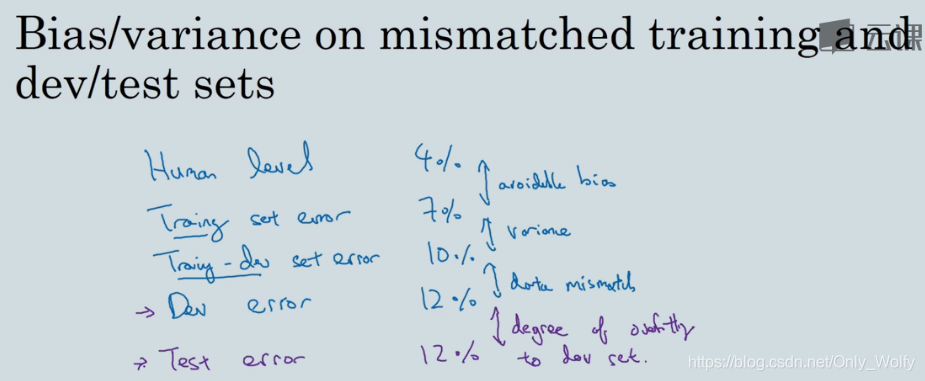 Bias/variance on mismatched training and
dev/test sets
云课
Human level 4%
avoidable bias
Training set error 7%
variance
Training-dev set error 10%
data mismatch
→ Dev error 12%
degree of overfitting
→ Test error 12% to dev set.
https://blog.csdn.net/Only_Wolfy